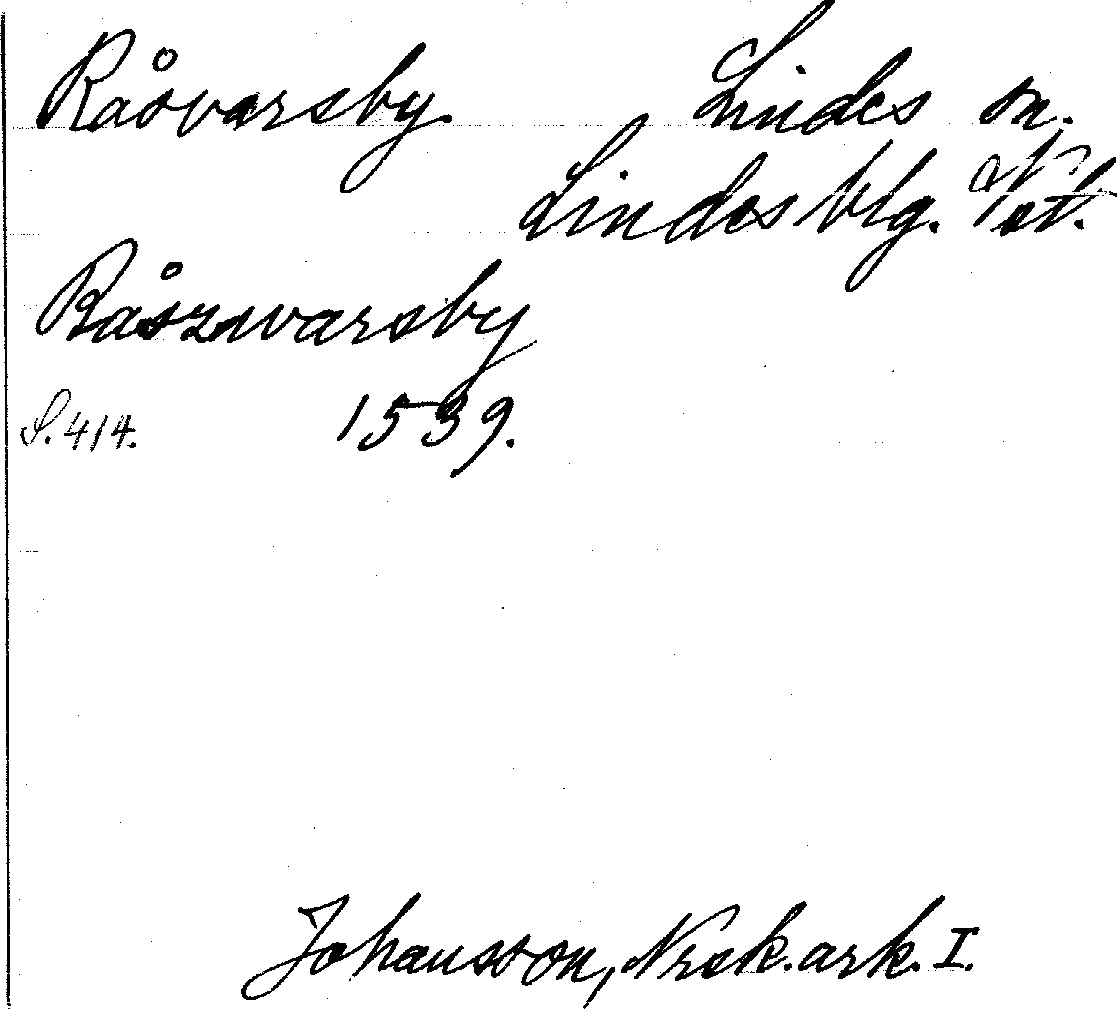 Råsvarsby. Lindes sn.
Lindesblg. Vet.
Råszwarsby
S. 414. 1539.
Johansson, Norsk. ark. I.